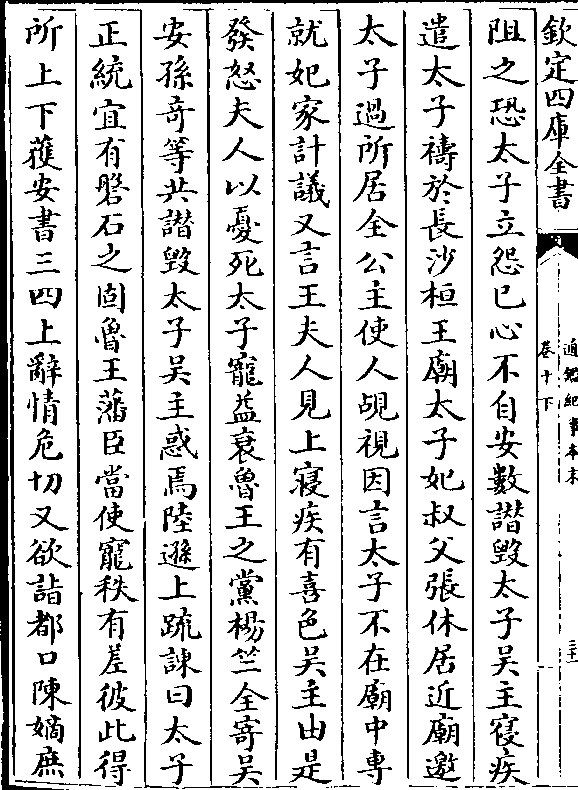 欽定四庫全書
通鑑紀事本末
卷十下
三十一
阻之恐太子立怨已心不自安數譖毀太子吳主寑疾
遣太子禱於長沙桓王廟太子妃叔父張休居近廟邀
太子過所居全公主使人覘視因言太子不在廟中專
就妃家計議又言王夫人見上寑疾有喜色吳主由是
發怒夫人以憂死太子寵益衰魯王之黨楊竺全寄吳
安孫竒等共譖毀太子吳主惑焉陸遜上䟽諌曰太子
正統宜有磐石之固魯王藩臣當使寵秩有差彼此得
所上下獲安書三四上辭情危切又欲詣都口陳嫡庶